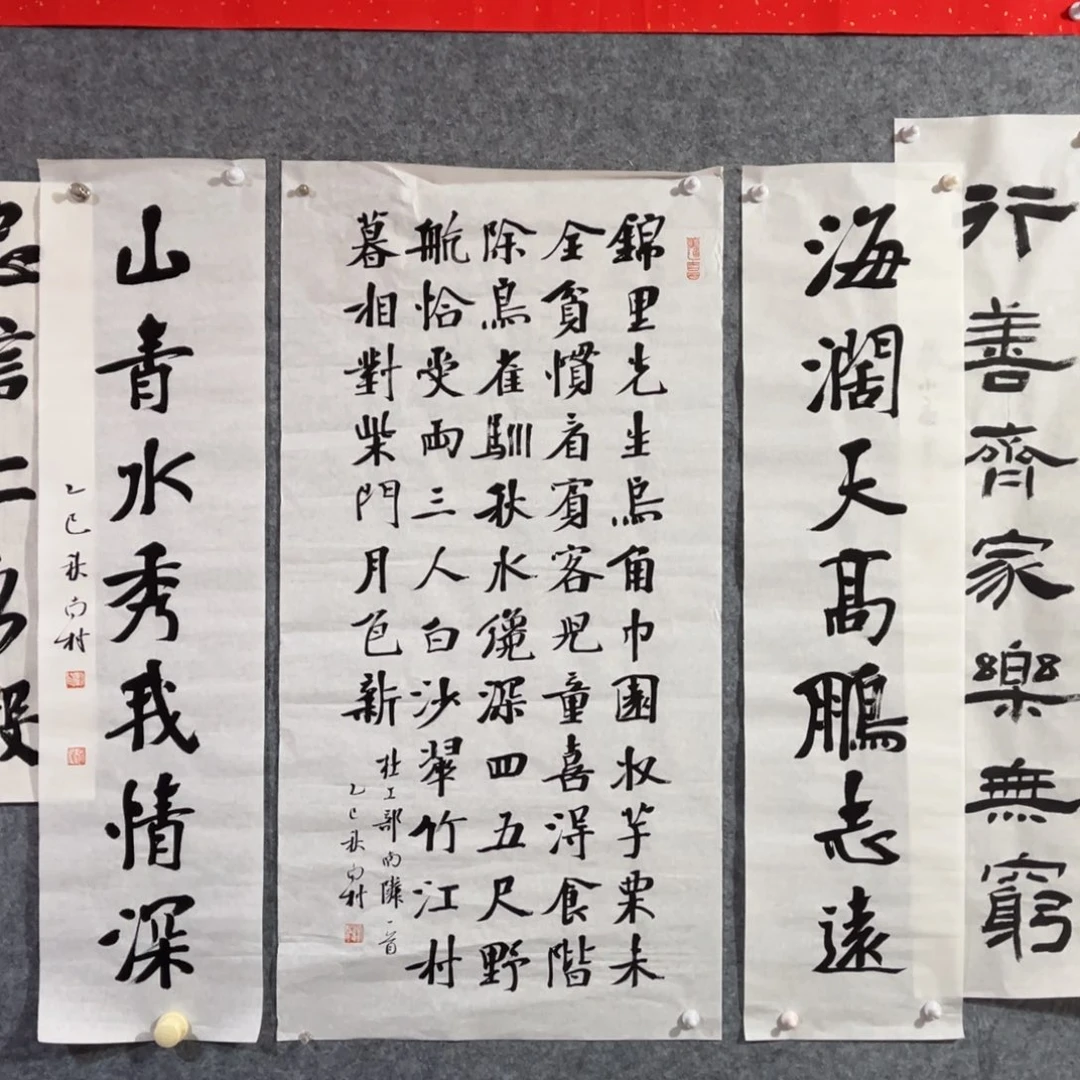 行善齊家樂無窮
海濶天髙鵬志遠
錦里先生烏角巾園收芋栗未
全貧慣看賓客兒童喜得食階
除鳥雀馴秋水纔深四五尺野
航恰受兩三人白沙翠竹江村
暮相對柴門月色新
杜工部南隣一首
乙巳秋村
山青水秀我情深
乙巳秋村